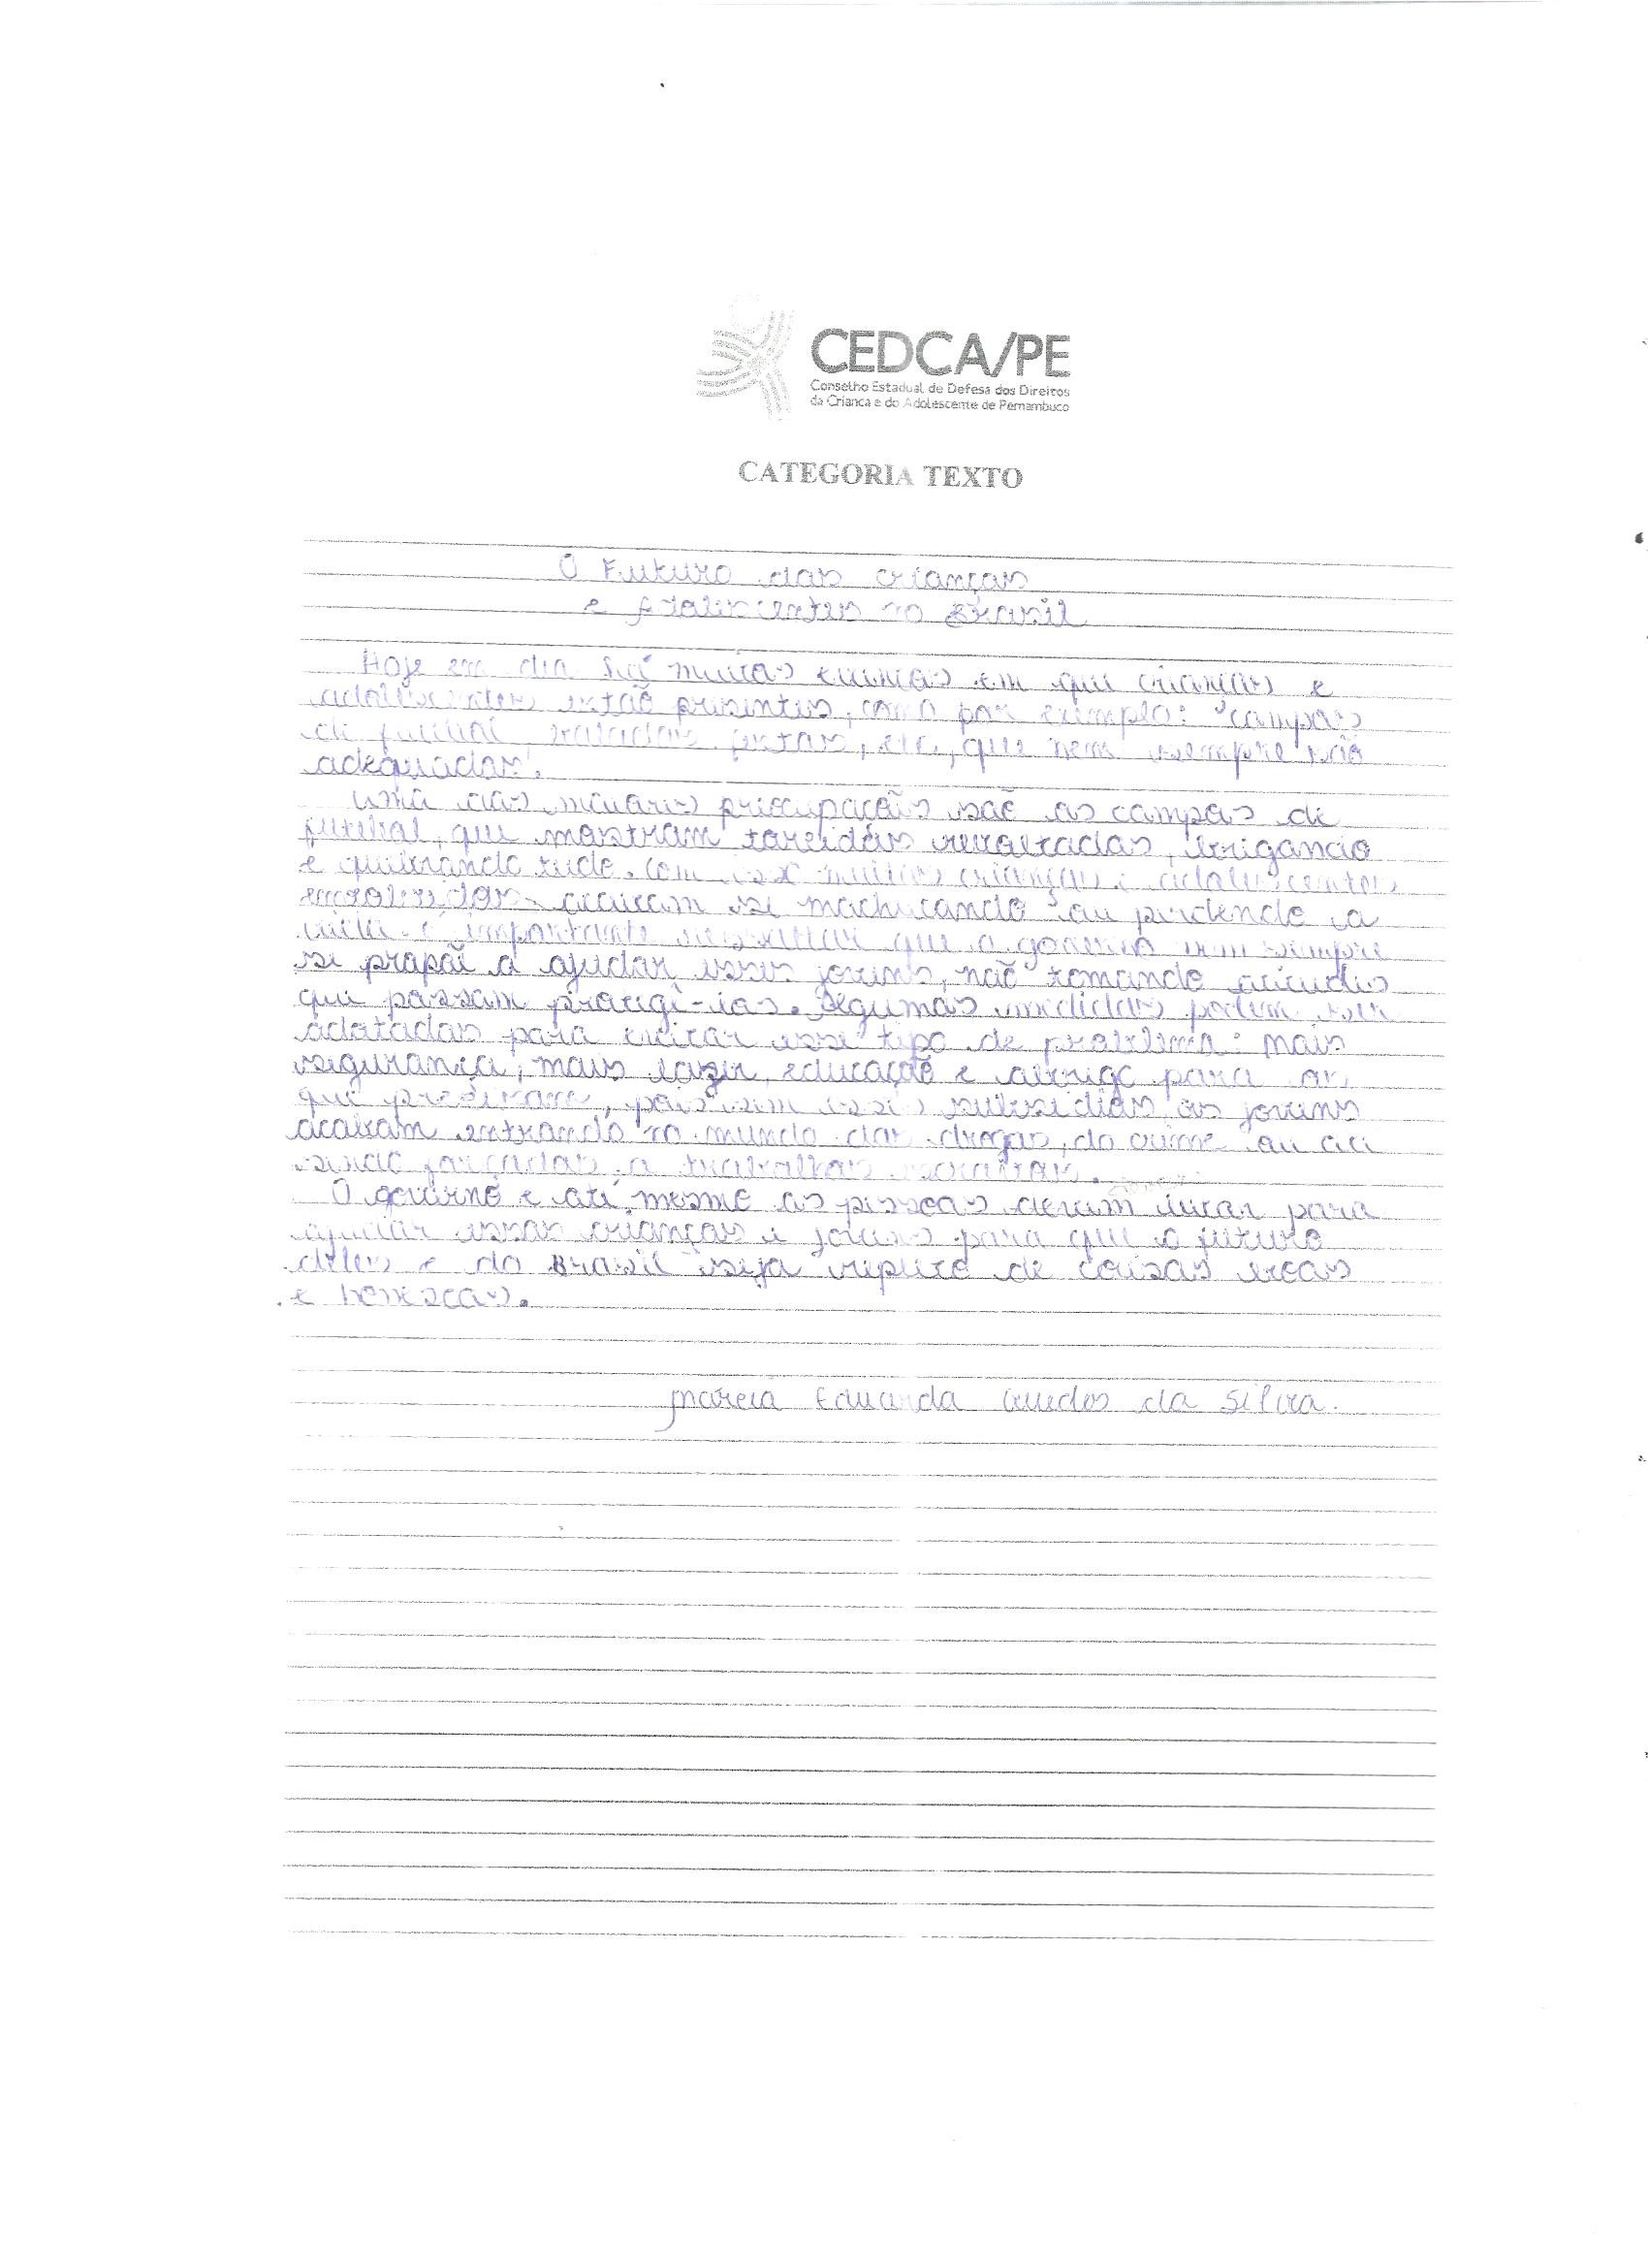 CEDCA/PE
Conselho Estadual de Defesa dos Direitos
da Criança e do Adolescente de Pernambuco
CATEGORIA TEXTO
O Futuro das crianças
e Adolescentes no Brasil
Hoje em dia há muitos eventos em que crianças e
adolescentes estão presentes, como por exemplo: "campos
de futebol, estádios, festas, etc, que nem sempre são
adequados".
Uma das maiores preocupações são os campos de
futebol, que mostram torcidas revoltadas, brigando
e quebrando tudo. Com isso muitas crianças e adolescentes
envolvidos acabam se machucando ou perdendo a
vida. É importante ressaltar que o governo nem sempre
se propõe a ajudar esses jovens, não tomando atitudes
que possam protegê-los. Algumas medidas podem ser
adotadas para evitar esse tipo de problema: mais
segurança, mais lazer, educação e abrigo para os
que precisam, pois sem esses subsídios os jovens
acabam entrando no mundo das drogas, do crime ou até
sendo forçados a trabalhos
O governo e até mesmo as pessoas devem lutar para
ajudar essas crianças e jovens para que o futuro
deles e do Brasil seja repleto de coisas boas
e honestas.
Marcia Eduarda Guedes da Silva.